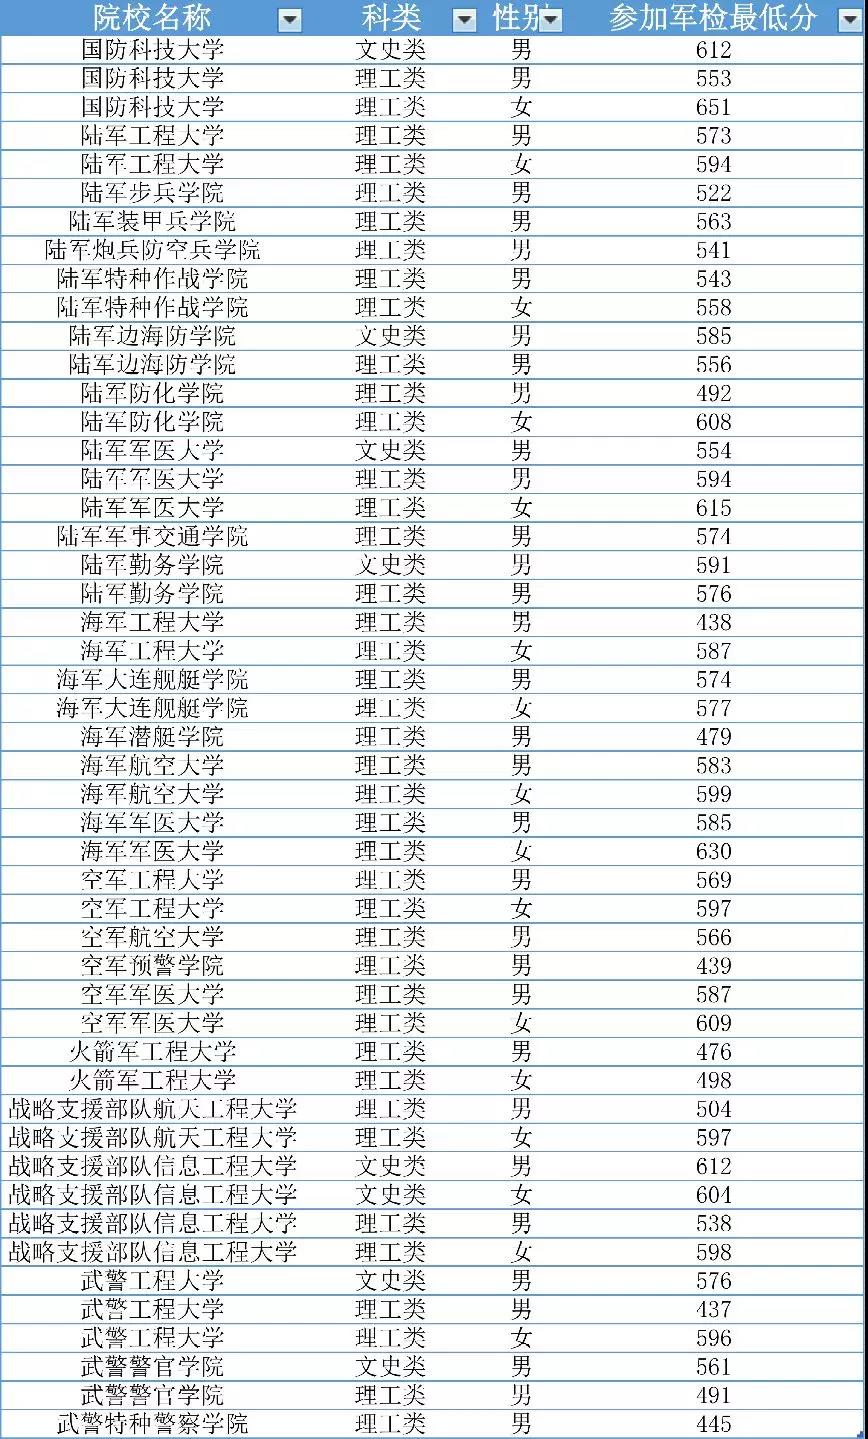 院校名称 科类 性别 参加军检最低分
国防科技大学 文史类 男 612
国防科技大学 理工类 男 553
国防科技大学 理工类 女 651
陆军工程大学 理工类 男 573
陆军工程大学 理工类 女 594
陆军步兵学院 理工类 男 522
陆军装甲兵学院 理工类 男 563
陆军炮兵防空兵学院 理工类 男 541
陆军特种作战学院 理工类 男 543
陆军特种作战学院 理工类 女 558
陆军边海防学院 文史类 男 585
陆军边海防学院 理工类 男 556
陆军防化学院 理工类 男 492
陆军防化学院 理工类 女 608
陆军军医大学 文史类 男 554
陆军军医大学 理工类 男 594
陆军军医大学 理工类 女 615
陆军军事交通学院 理工类 男 574
陆军勤务学院 文史类 男 591
陆军勤务学院 理工类 男 576
海军工程大学 理工类 男 438
海军工程大学 理工类 女 587
海军大连舰艇学院 理工类 男 574
海军大连舰艇学院 理工类 女 577
海军潜艇学院 理工类 男 479
海军航空大学 理工类 男 583
海军航空大学 理工类 女 599
海军军医大学 理工类 男 585
海军军医大学 理工类 女 630
空军工程大学 理工类 男 569
空军工程大学 理工类 女 597
空军航空大学 理工类 男 566
空军预警学院 理工类 男 439
空军军医大学 理工类 男 587
空军军医大学 理工类 女 609
火箭军工程大学 理工类 男 476
火箭军工程大学 理工类 女 498
战略支援部队航天工程大学 理工类 男 504
战略支援部队航天工程大学 理工类 女 597
战略支援部队信息工程大学 文史类 男 612
战略支援部队信息工程大学 文史类 女 604
战略支援部队信息工程大学 理工类 男 538
战略支援部队信息工程大学 理工类 女 598
武警工程大学 文史类 男 576
武警工程大学 理工类 男 437
武警工程大学 理工类 女 596
武警警官学院 文史类 男 561
武警警官学院 理工类 男 491
武警特种警察学院 理工类 男 445